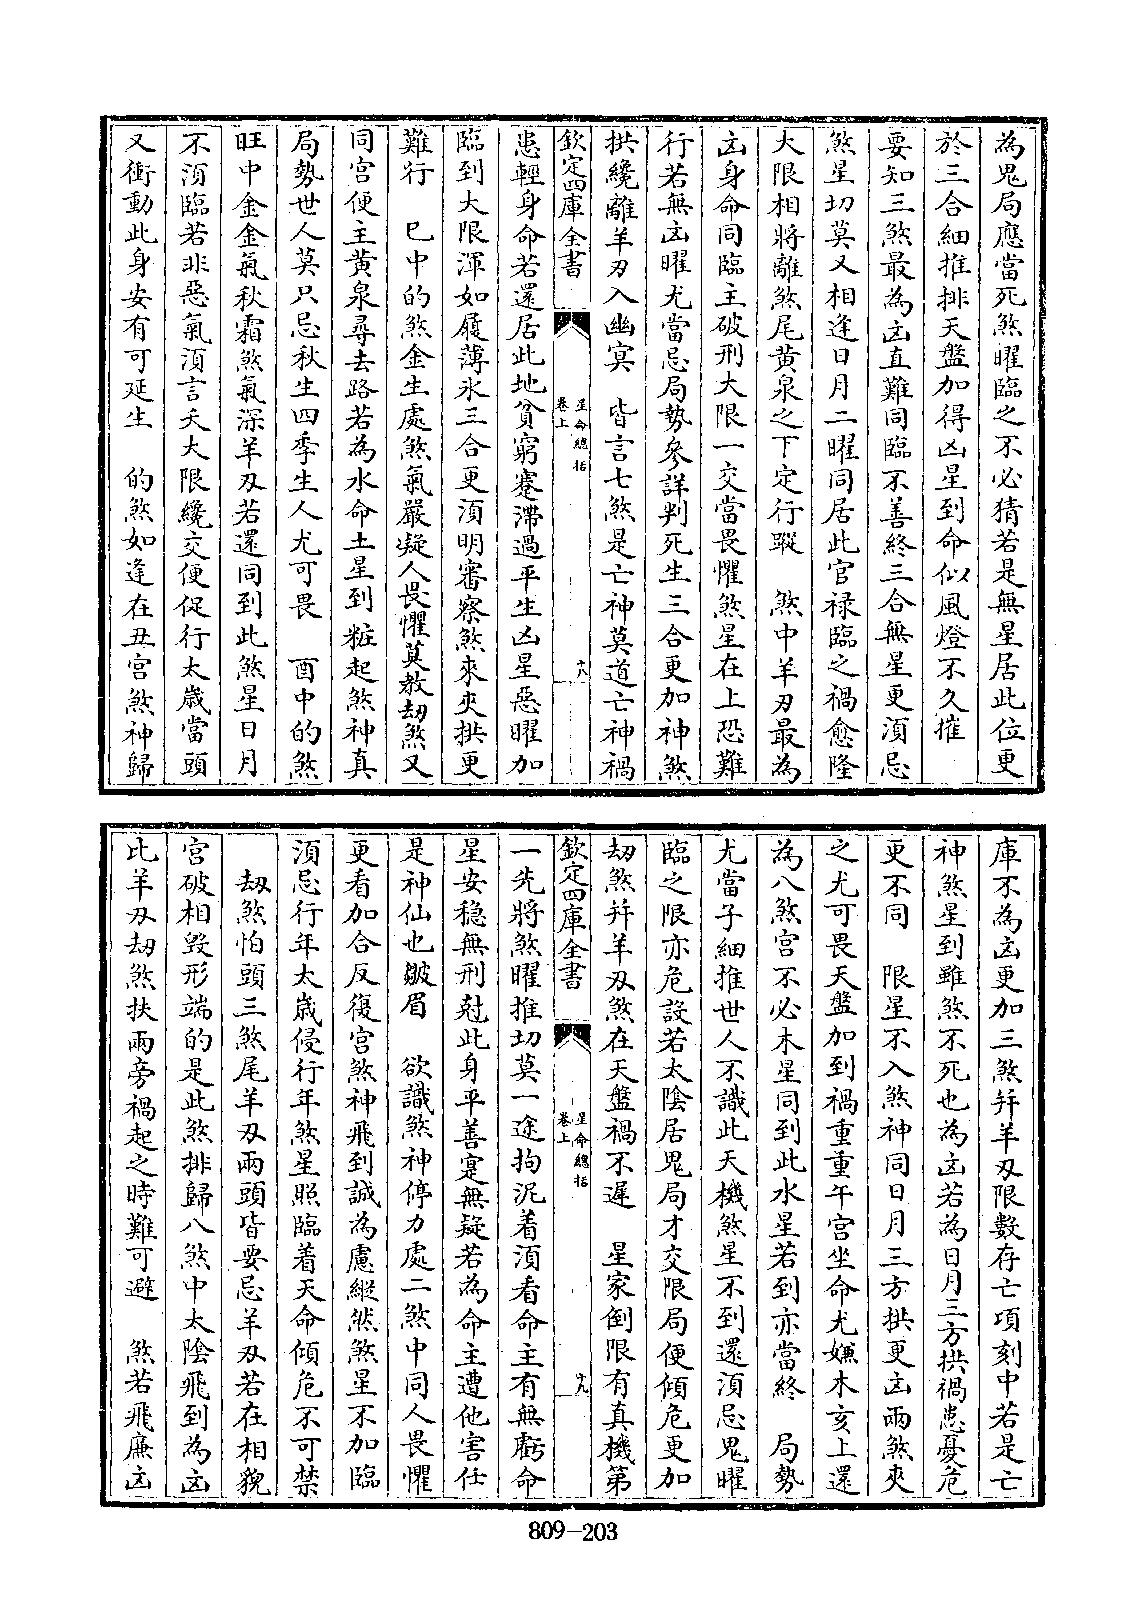 為鬼局應當死煞曜臨之不必猜若是無星居此位更
於三合細推排天盤加得凶星到命似風燈不久摧
要知三煞最為凶直難同臨不善終三合無星更須忌
煞星切莫又相逢日月二曜同居此官禄臨之禍愈隆
大限相將離煞尾黄泉之下定行蹤　煞中羊刃最為
凶身命同臨主破刑大限一交當畏懼煞星在上恐難
行若無凶曜尤當忌局勢參詳判死生三合更加神煞
拱纔離羊刃入幽冥　皆言七煞是亡神莫道亡神禍
欽定四庫全書
星命總括
卷上
十八
患輕身命若還居此地貧窮蹇滯過平生凶星惡曜加
臨到大限渾如履薄氷三合更須明審察煞來夾拱更
難行　巳中的煞金生處煞氣嚴凝人畏懼莫教劫煞又
同宫便主黄泉尋去路若為水命土星到粧起煞神真
局勢世人莫只忌秋生四季生人尤可畏　酉中的煞
旺中金金氣秋霜煞氣深羊刃若還同到此煞星日月
不須臨若非惡氣須言夭大限纔交便促行太歲當頭
又衝動此身安有可延生　的煞如逢在丑宫煞神歸
庫不為凶更加三煞并羊刃限數存亡項刻中若是亡
神煞星到雖煞不死也為凶若為日月三方拱禍患憂危
更不同　限星不入煞神同日月三方拱更凶兩煞夾
之尤可畏天盤加到禍重重午宫坐命尤嫌木亥上還
為八煞宫不必木星同到此水星若到亦當終　局勢
尤當子細推世人不識此天機煞星不到還須忌鬼曜
臨之限亦危設若太陰居鬼局才交限局便傾危更加
劫煞并羊刃煞在天盤禍不遲　星家倒限有真機第
欽定四庫全書
星命總括
卷上
十九
一先將煞曜推切莫一途拘泥着須看命主有無虧命
星安穩無刑尅此身平善寔無疑若為命主遭他害任
是神仙也皺眉　欲識煞神停力處二煞中同人畏懼
更看加合反復宫煞神飛到誠為慮縱然煞星不加臨
須忌行年太歲侵行年煞星照臨着天命傾危不可禁
劫煞怕頭三煞尾羊刃兩頭皆要忌羊刃若在相貌
宫破相毁形端的是此煞排歸八煞中太陰飛到為凶
此羊刃劫煞扶兩旁禍起之時難可避　煞若飛廉凶
809-203